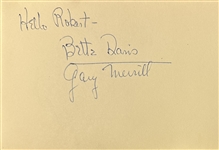 Hello Robert -
Bette Davis
Gary Merrill